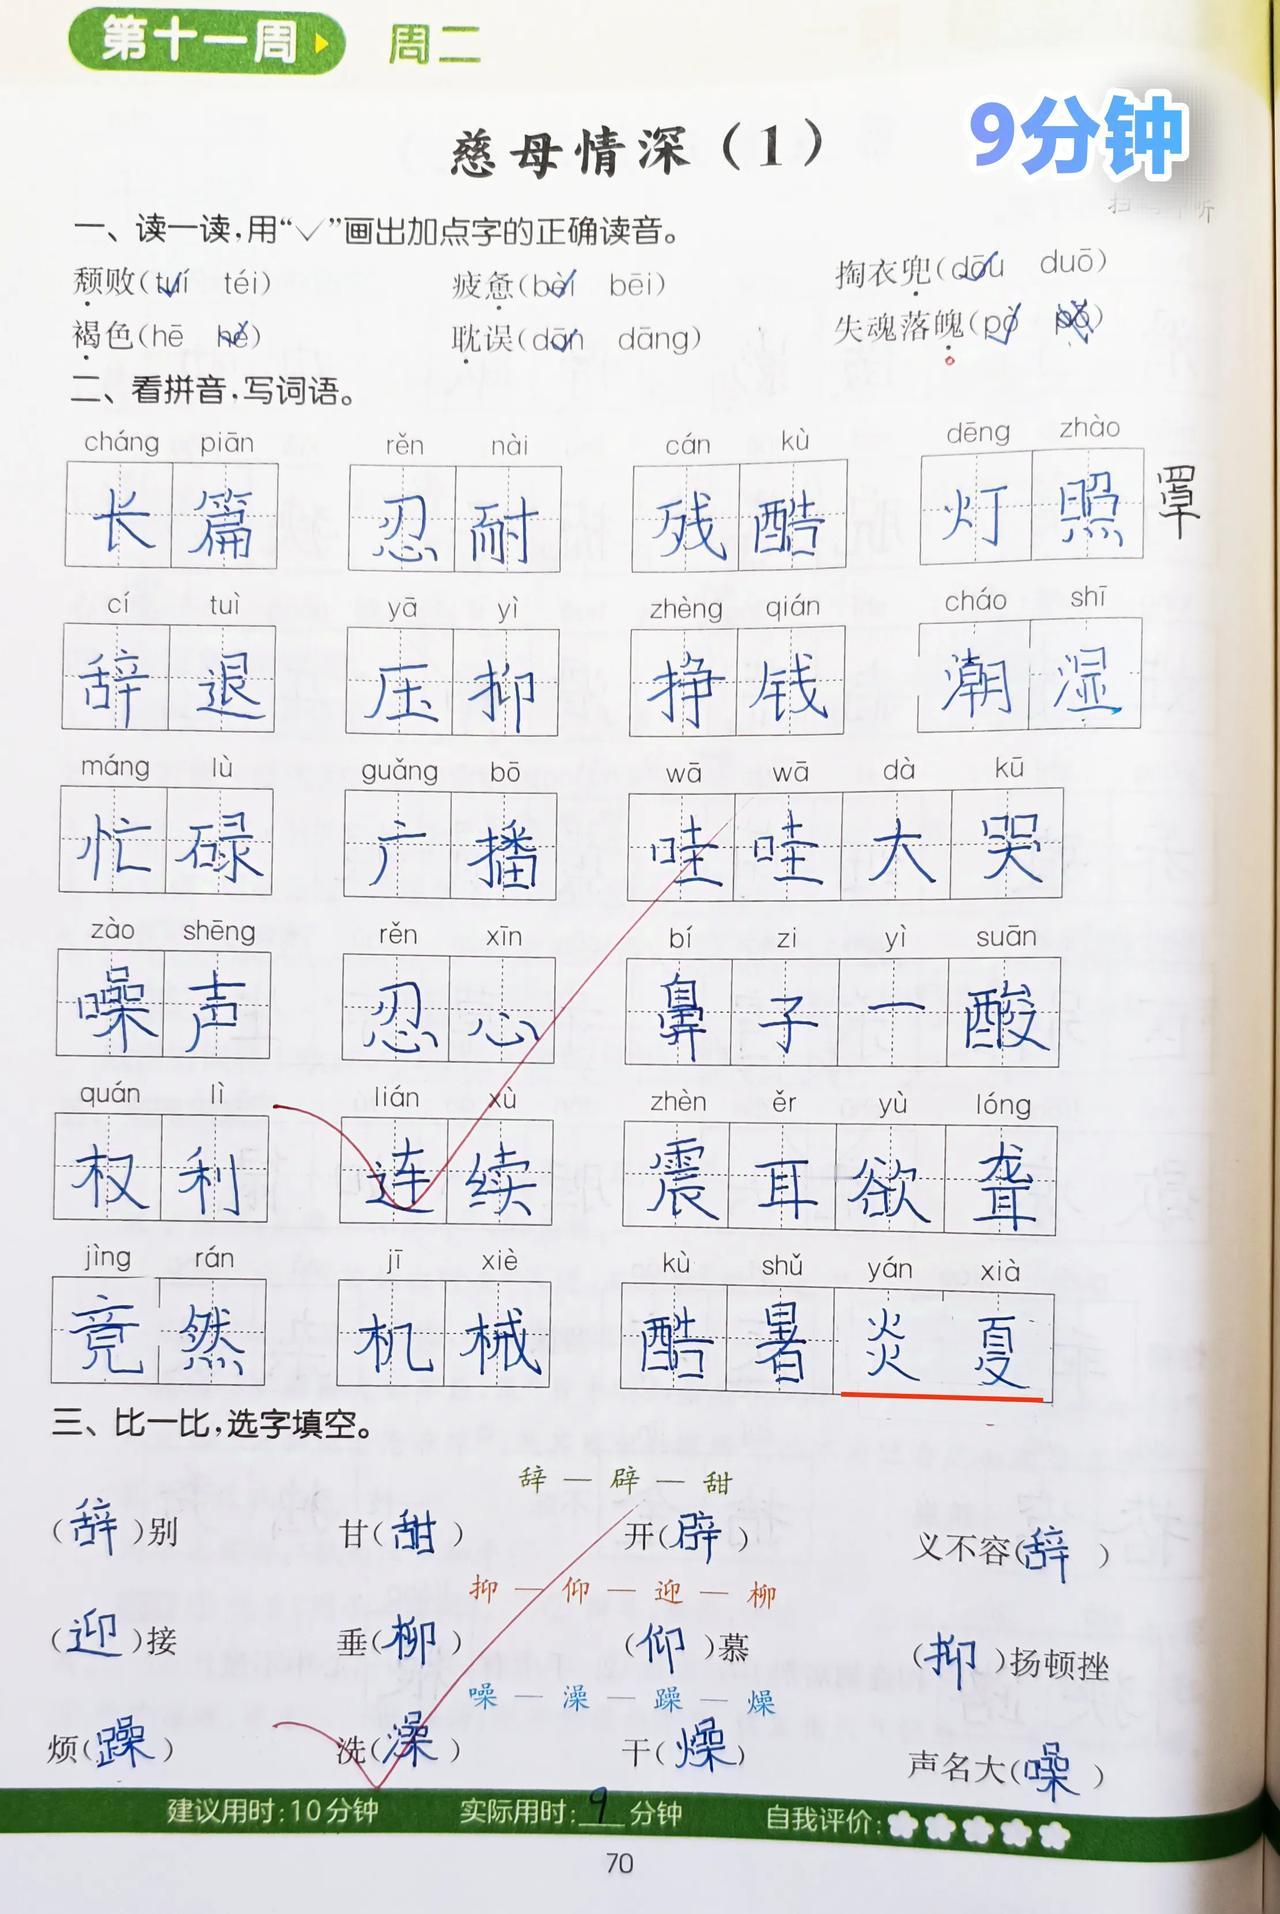 第十一周 周二
9分钟
慈母情深（1）
一、读一读，用“✓”画出加点字的正确读音。
颓败(tuí téi) 疲惫(bèi bēi) 掏衣兜(dōu duō)
褐色(hē hè) 耽误(dān dāng) 失魂落魄(pò pō)
二、看拼音，写词语。
cháng piān rěn nài cán kù dēng zhào
长篇 忍耐 残酷 灯照 罩
cí tuì yā yì zhèng qián cháo shī
辞退 压抑 挣钱 潮湿
máng lù guǎng bō wā wā dà kū
忙碌 广播 哇哇大哭
zào shēng rěn xīn bí zi yì suān
噪声 忍心 鼻子一酸
quán lì lián xù zhèn ěr yù lóng
权利 连续 震耳欲聋
jìng rán jī xiè kù shǔ yán xià
竟然 机械 酷暑炎夏
三、比一比，选字填空。
辞 — 辟 — 甜
(辞)别 甘(甜) 开(辟) 义不容(辞)
抑 — 仰 — 迎 — 柳
(迎)接 垂(柳) (仰)慕 (抑)扬顿挫
噪 — 澡 — 躁 — 燥
烦(躁) 洗(澡) 干(燥) 声名大(噪)
建议用时：10分钟 实际用时：9分钟 自我评价：
70